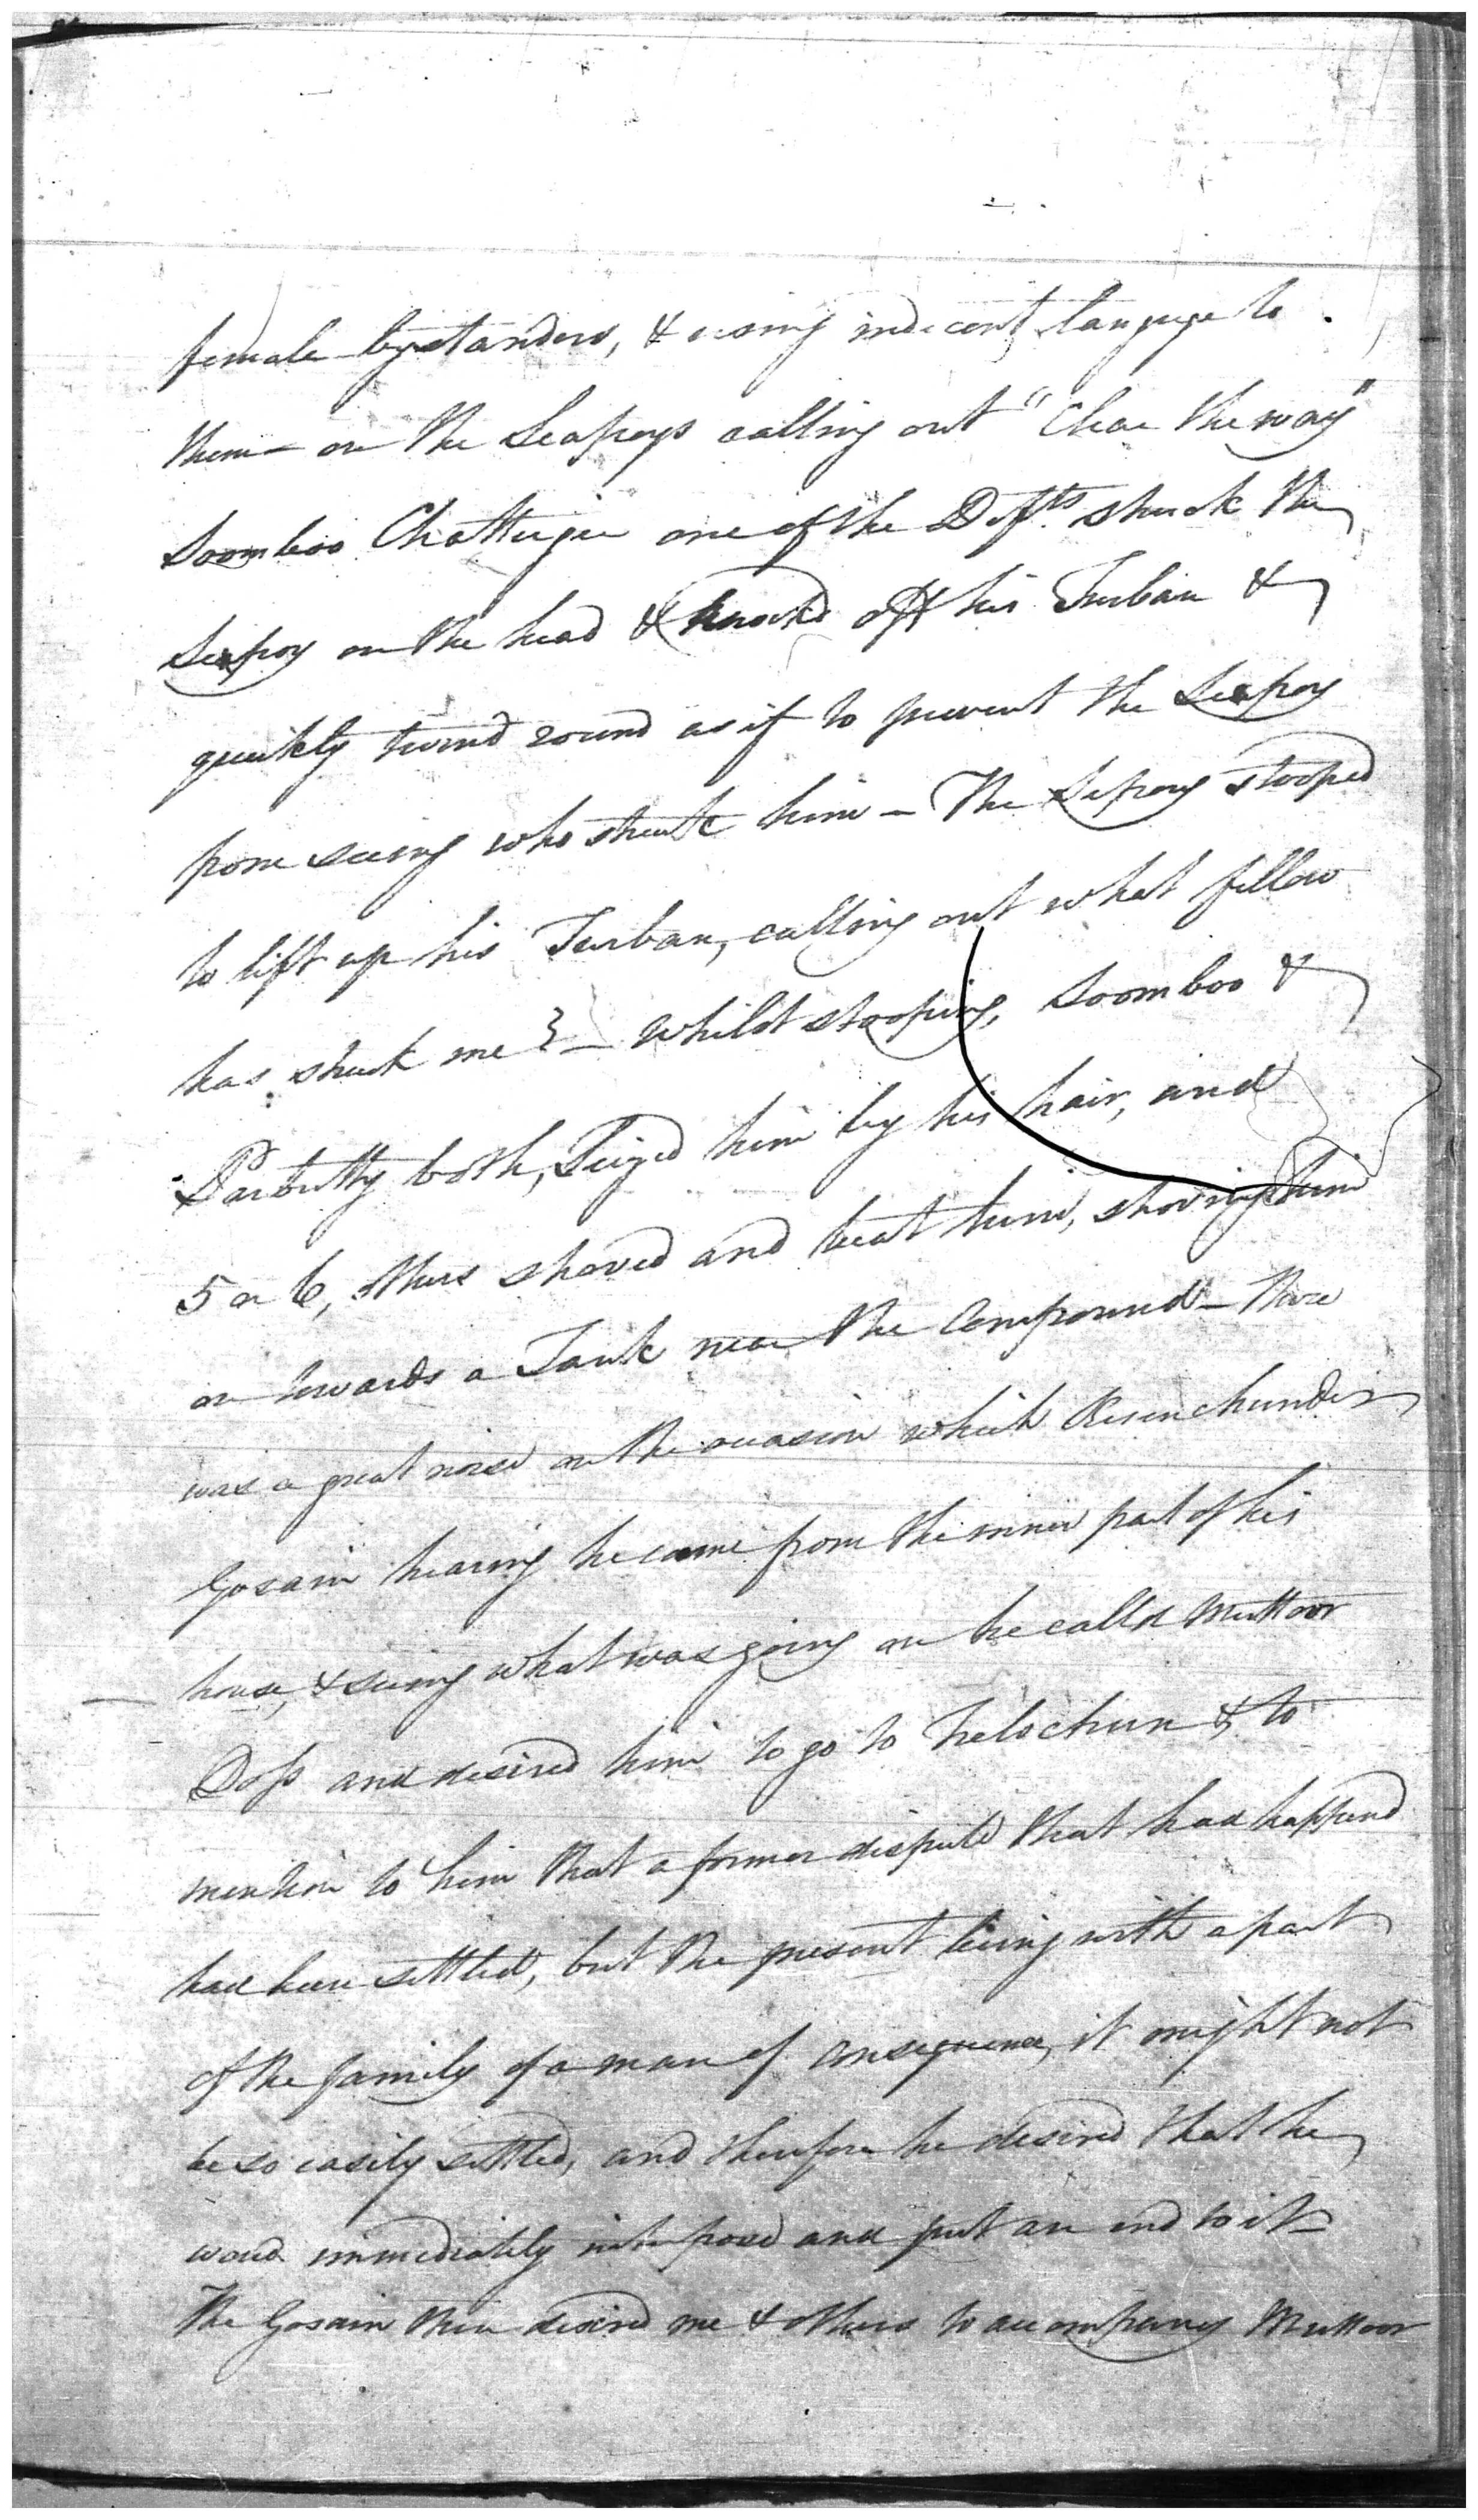 female bystanders, & using indecent language to
them – on the Seapoys calling out "Clear the way"
Soomboo Chatterjee one of the Defts. struck the
Seapoy on the head & knock'd off his Turban &
quickly turn'd round as if to prevent the Seapoy
from seeing who struck him – The Sepoy stooped
to lift up his Turban, calling out what fellow
has struck me – Whilst stooping, Soomboo &
Parbutty both, Seized him by his hair, and
5 or 6, others shoved and beat him, shoving him
on towards a Tank near the Compound – There
was a great noise on the occasion which Kisenchunder
Gosain hearing he came from the inner part of his
house, & seeing what was going on he call'd Muttoor
Doss and desired him to go to Trelochun & to
mention to him that a former dispute that had happend
had been settled, but the present being with a part
of the family of a man of Consequence, it might not
be so easily settled, and therefore he desired that he
would immediately interpose and put an end to it –
The Gosain then desired me & others to accompany Muttoor